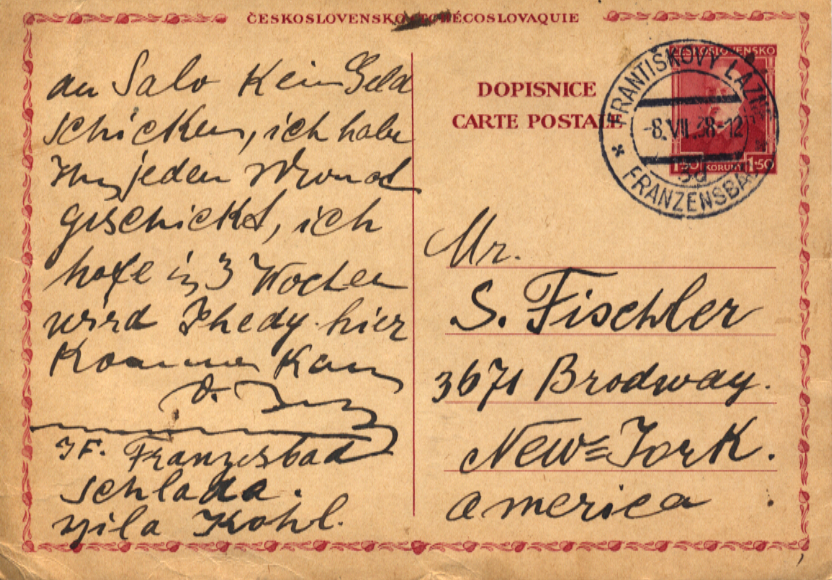 ČESKOSLOVENSKO TCHÉCOSLOVAQUIE
an Salo Kein Geld
schicken, ich habe
Ihm jeden Monat
geschickt, ich
hofe in 3 Wochen
wird Ihedy hier
Kommen Kann
IF. Franzesbad
Schlada.
Kohl.
DOPISNICE
CARTE POSTALE
ČESKOSLOVENSKO
1·50 KORUNA 1·50
FRANTIŠKOVY LÁZNĚ
-8.VII.38-12
FRANZENSBAD
Mr.
S. Fischler
3671 Brodway.
New=York.
America.